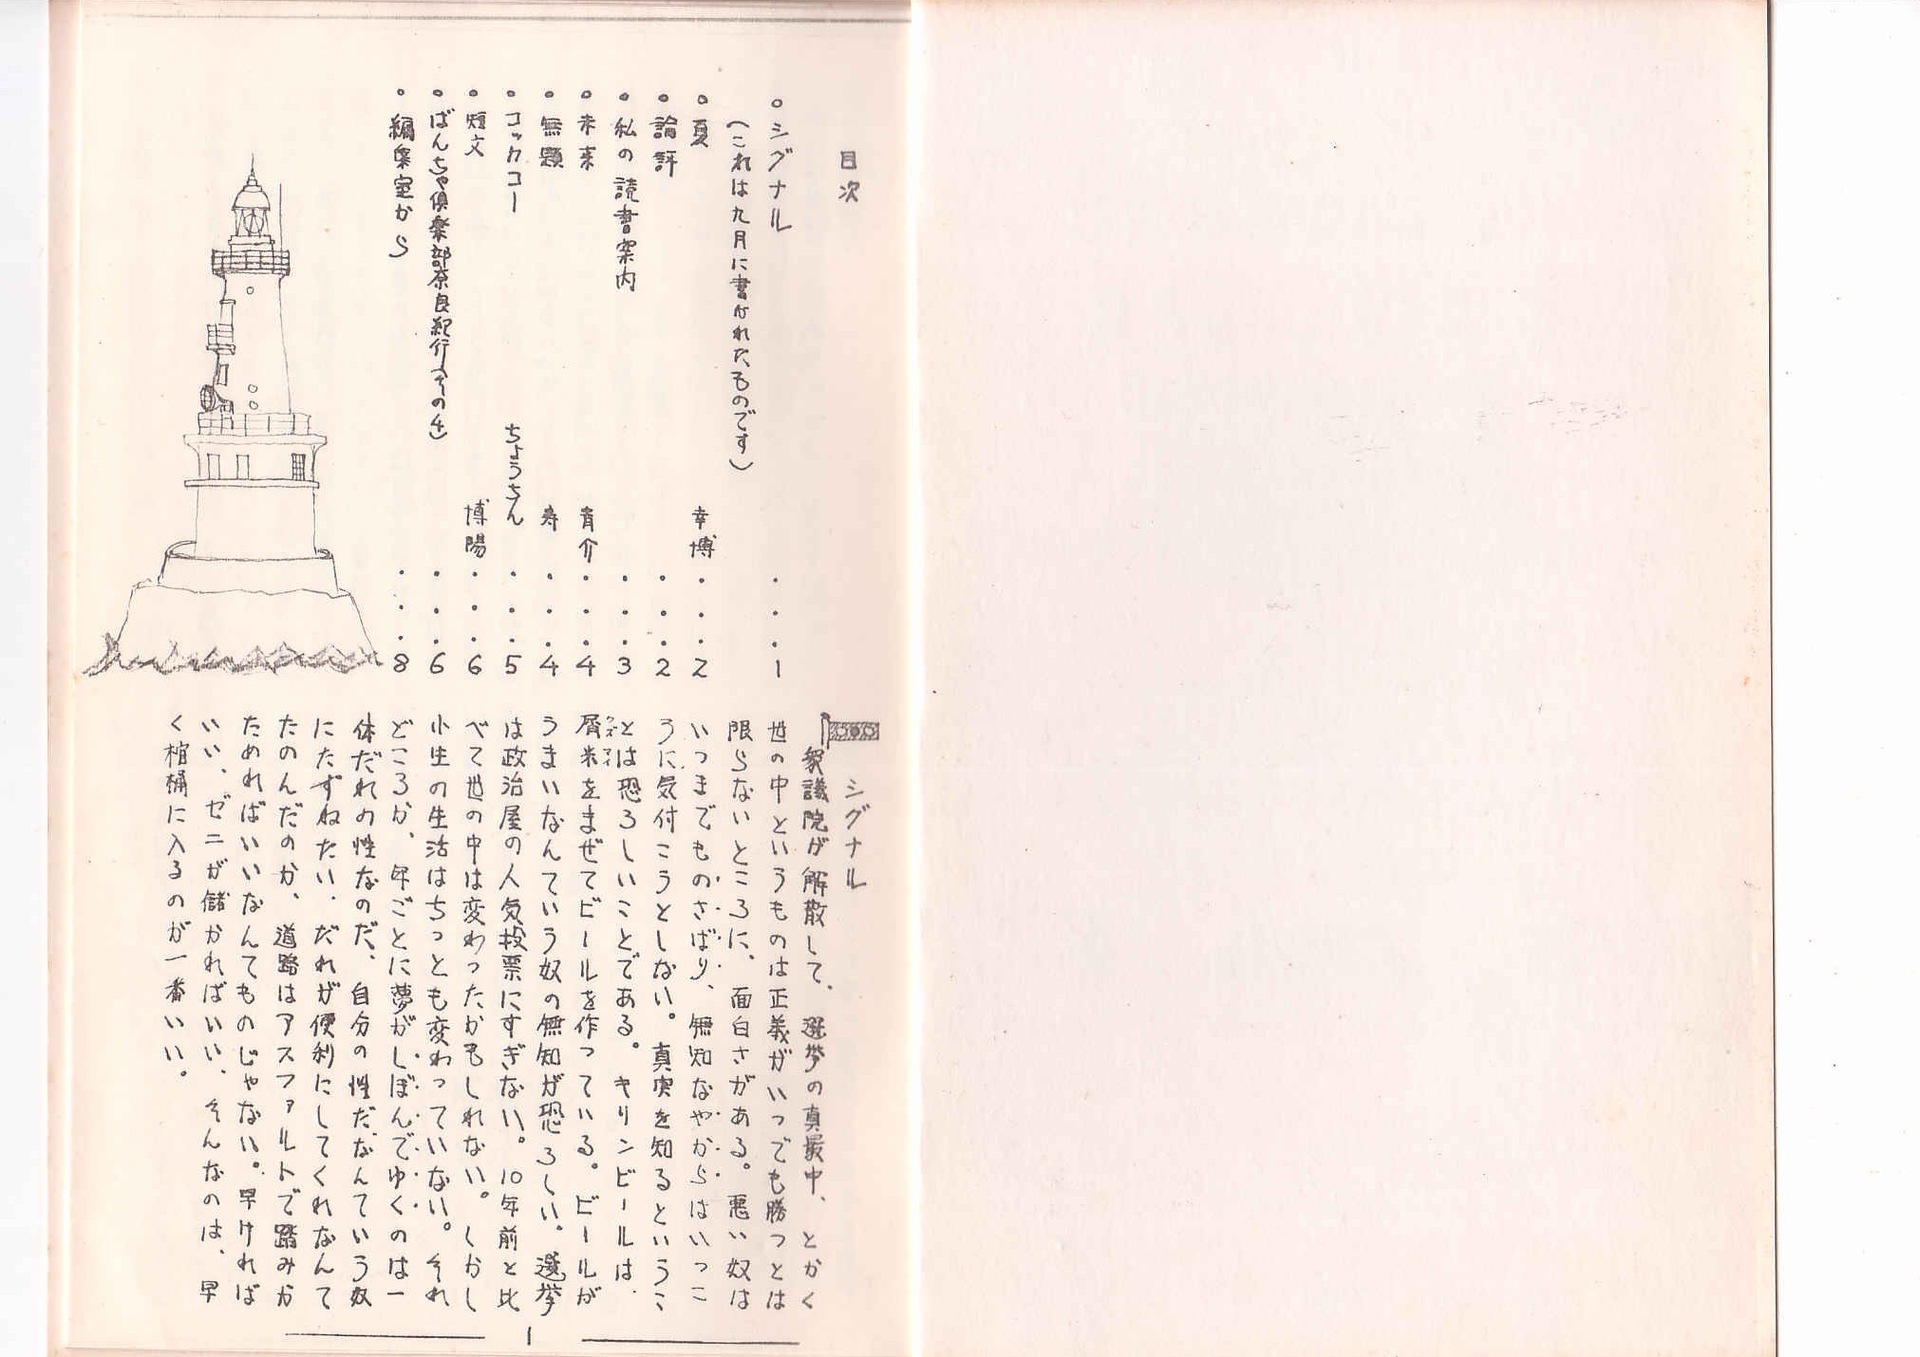 目次
○シグナル ・・・1
(これは九月に書かれたものです)
○夏 幸博・・・2
○論評 ・・・2
○私の読書案内 ・・・3
○未来 青介・・・4
○無題 寿・・・4
○コッカコー ちょうちん・・・5
○短文 博陽・・・6
○ばんちゃ倶楽部奈良紀行(その4) ・・・6
○編集室から ・・・8
シグナル
衆議院が解散して、選挙の真最中、とかく
世の中というものは正義がいつでも勝つとは
限らないところに、面白さがある。悪い奴は
いつまでものさばり、無知なやからはいっこ
うに気付こうとしない。真実を知るというこ
とは恐ろしいことである。キリンビールは、
屑米をまぜてビールを作っている。ビールが
うまいなんていう奴の無知が恐ろしい。選挙
は政治屋の人気投票にすぎない。10年前と比
べて世の中は変わったかもしれない。しかし
小生の生活はちっとも変わっていない。それ
どころか、年ごとに夢がしぼんでゆくのは一
体だれの性なのだ、自分の性だなんていう奴
にたずねたい、だれが便利にしてくれなんて
たのんだのか、道路はアスファルトで踏みか
ためればいいなんてものじゃない。早ければ
いい、ゼニが儲かればいい、そんなのは、早
く棺桶に入るのが一番いい。
1